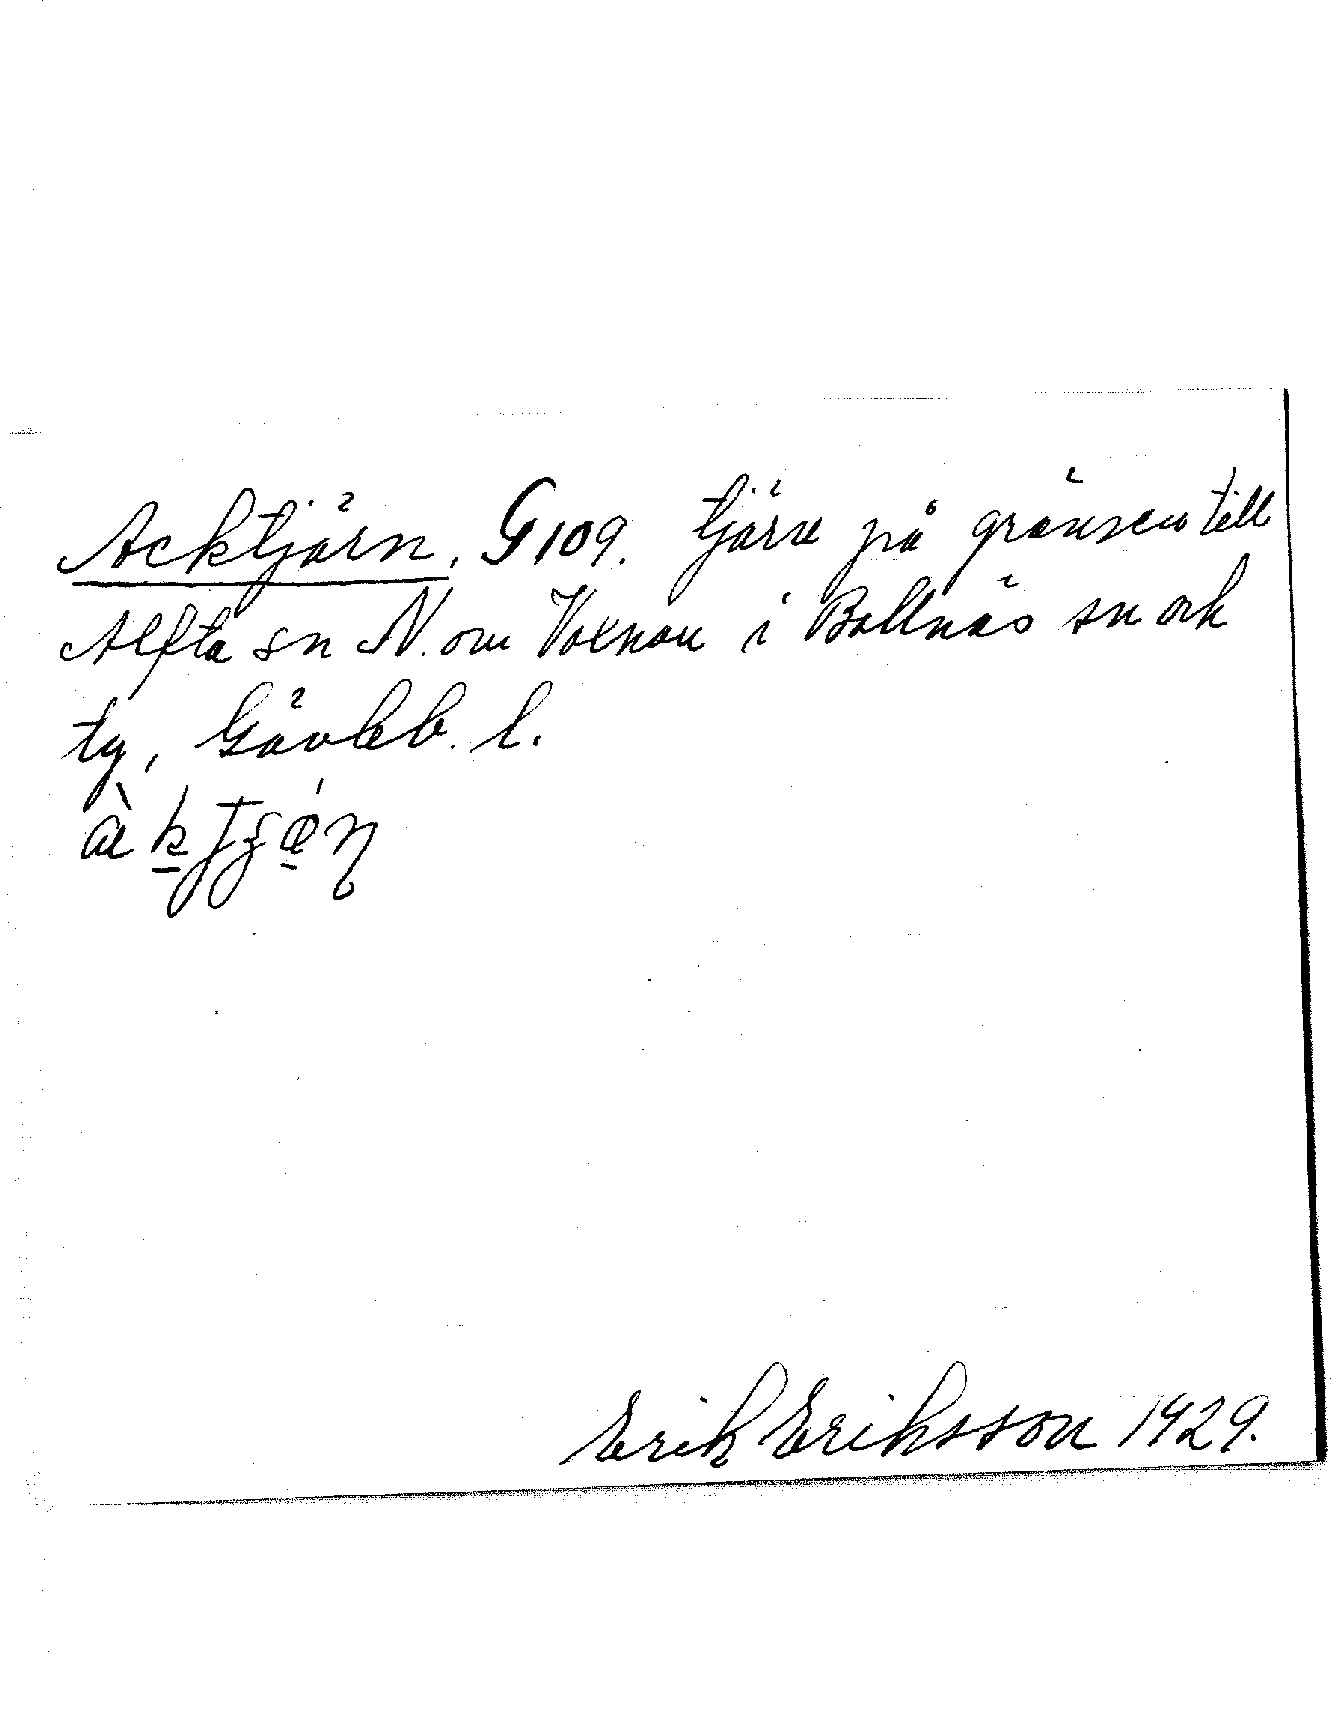 Acktjärn. G 109. tjärn på gränsen till
Alfta sn N. om Voxnan i Bollnäs sn och
tg, Gävleb. l.
Erik Eriksson 1929.